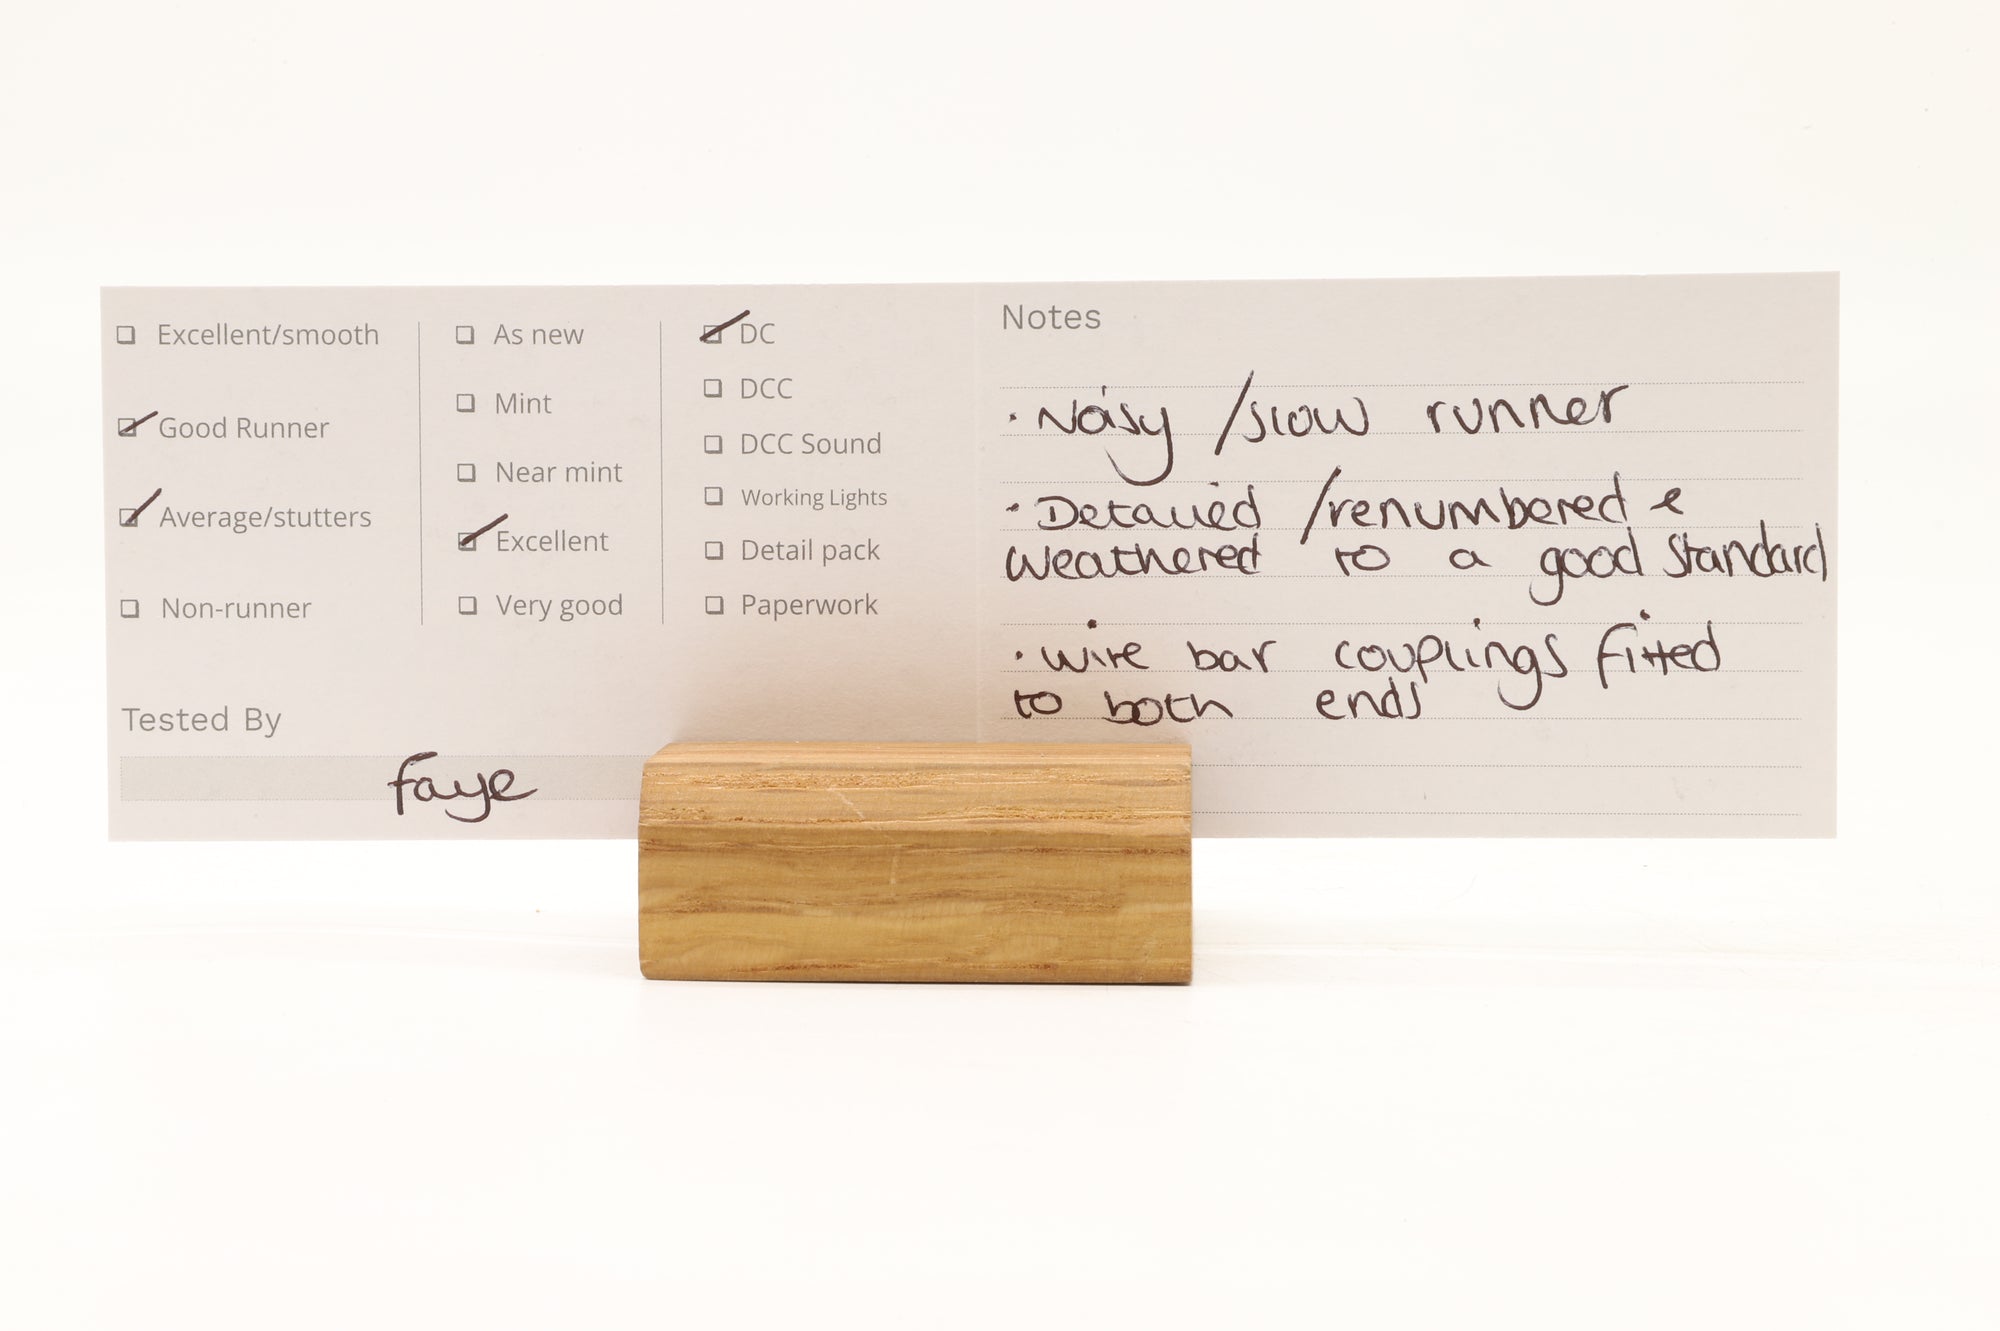 Excellent/smooth
Good Runner
Average/stutters
Non-runner
As new
Mint
Near mint
Excellent
Very good
DC
DCC
DCC Sound
Working Lights
Detail pack
Paperwork
Tested By
faye
Notes
· Noisy /slow runner
· Detailed /renumbered &
weathered to a good standard
· wire bar couplings fitted
to both ends